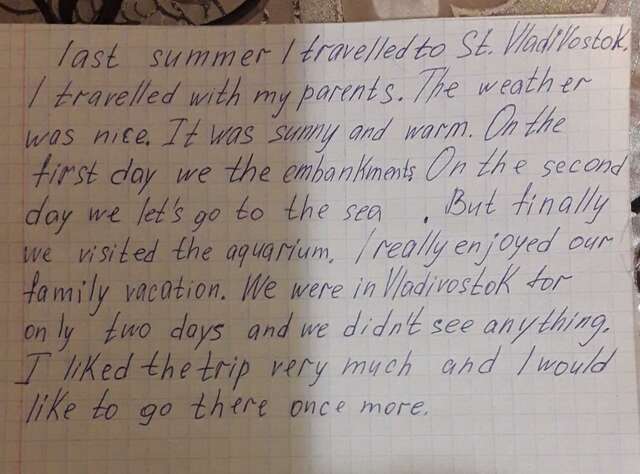 last summer I travelled to St. Vladivostok.
I travelled with my parents. The weather
was nice. It was sunny and warm. On the
first day we the embankments. On the second
day we let's go to the sea . But finally
we visited the aquarium. I really enjoyed our
family vacation. We were in Vladivostok for
only two days and we didn't see anything.
I liked the trip very much and I would
like to go there once more.